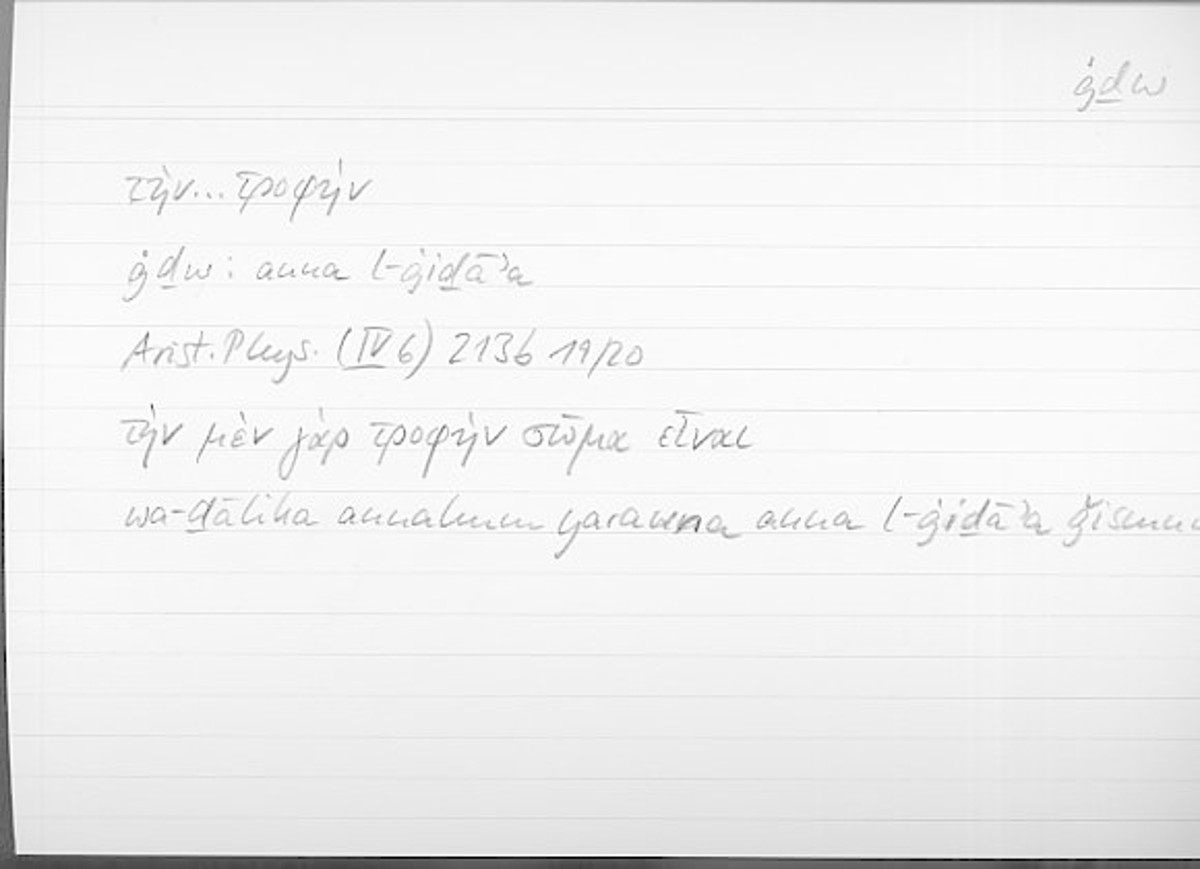 ġḏw
τὴν... τροφὴν
ġḏw: anna l-ġiḏāʾa
Arist. Phys. (IV 6) 213b 19/20
τὴν μὲν γὰρ τροφὴν σῶμα εἶναι
wa-ḏālika annahum yarawna anna l-ġiḏāʾa ǧismun